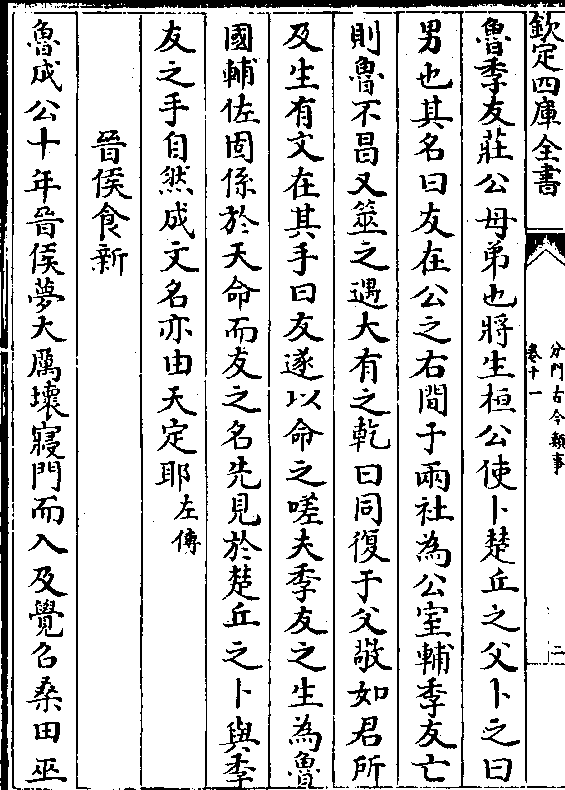 欽定四庫全書
分門古今類事
卷十一
二
魯季友莊公母弟也將生桓公使卜楚丘之父卜之曰
男也其名曰友在公之右間于兩社為公室輔季友亡
則魯不昌又筮之遇大有之乾曰同復于父敬如君所
及生有文在其手曰友遂以命之嗟夫季友之生為魯
國輔佐固係於天命而友之名先見於楚丘之卜與季
友之手自然成文名亦由天定耶左傳
晉侯食新
魯成公十年晉侯夢大厲壞寢門而入及覺召桑田巫